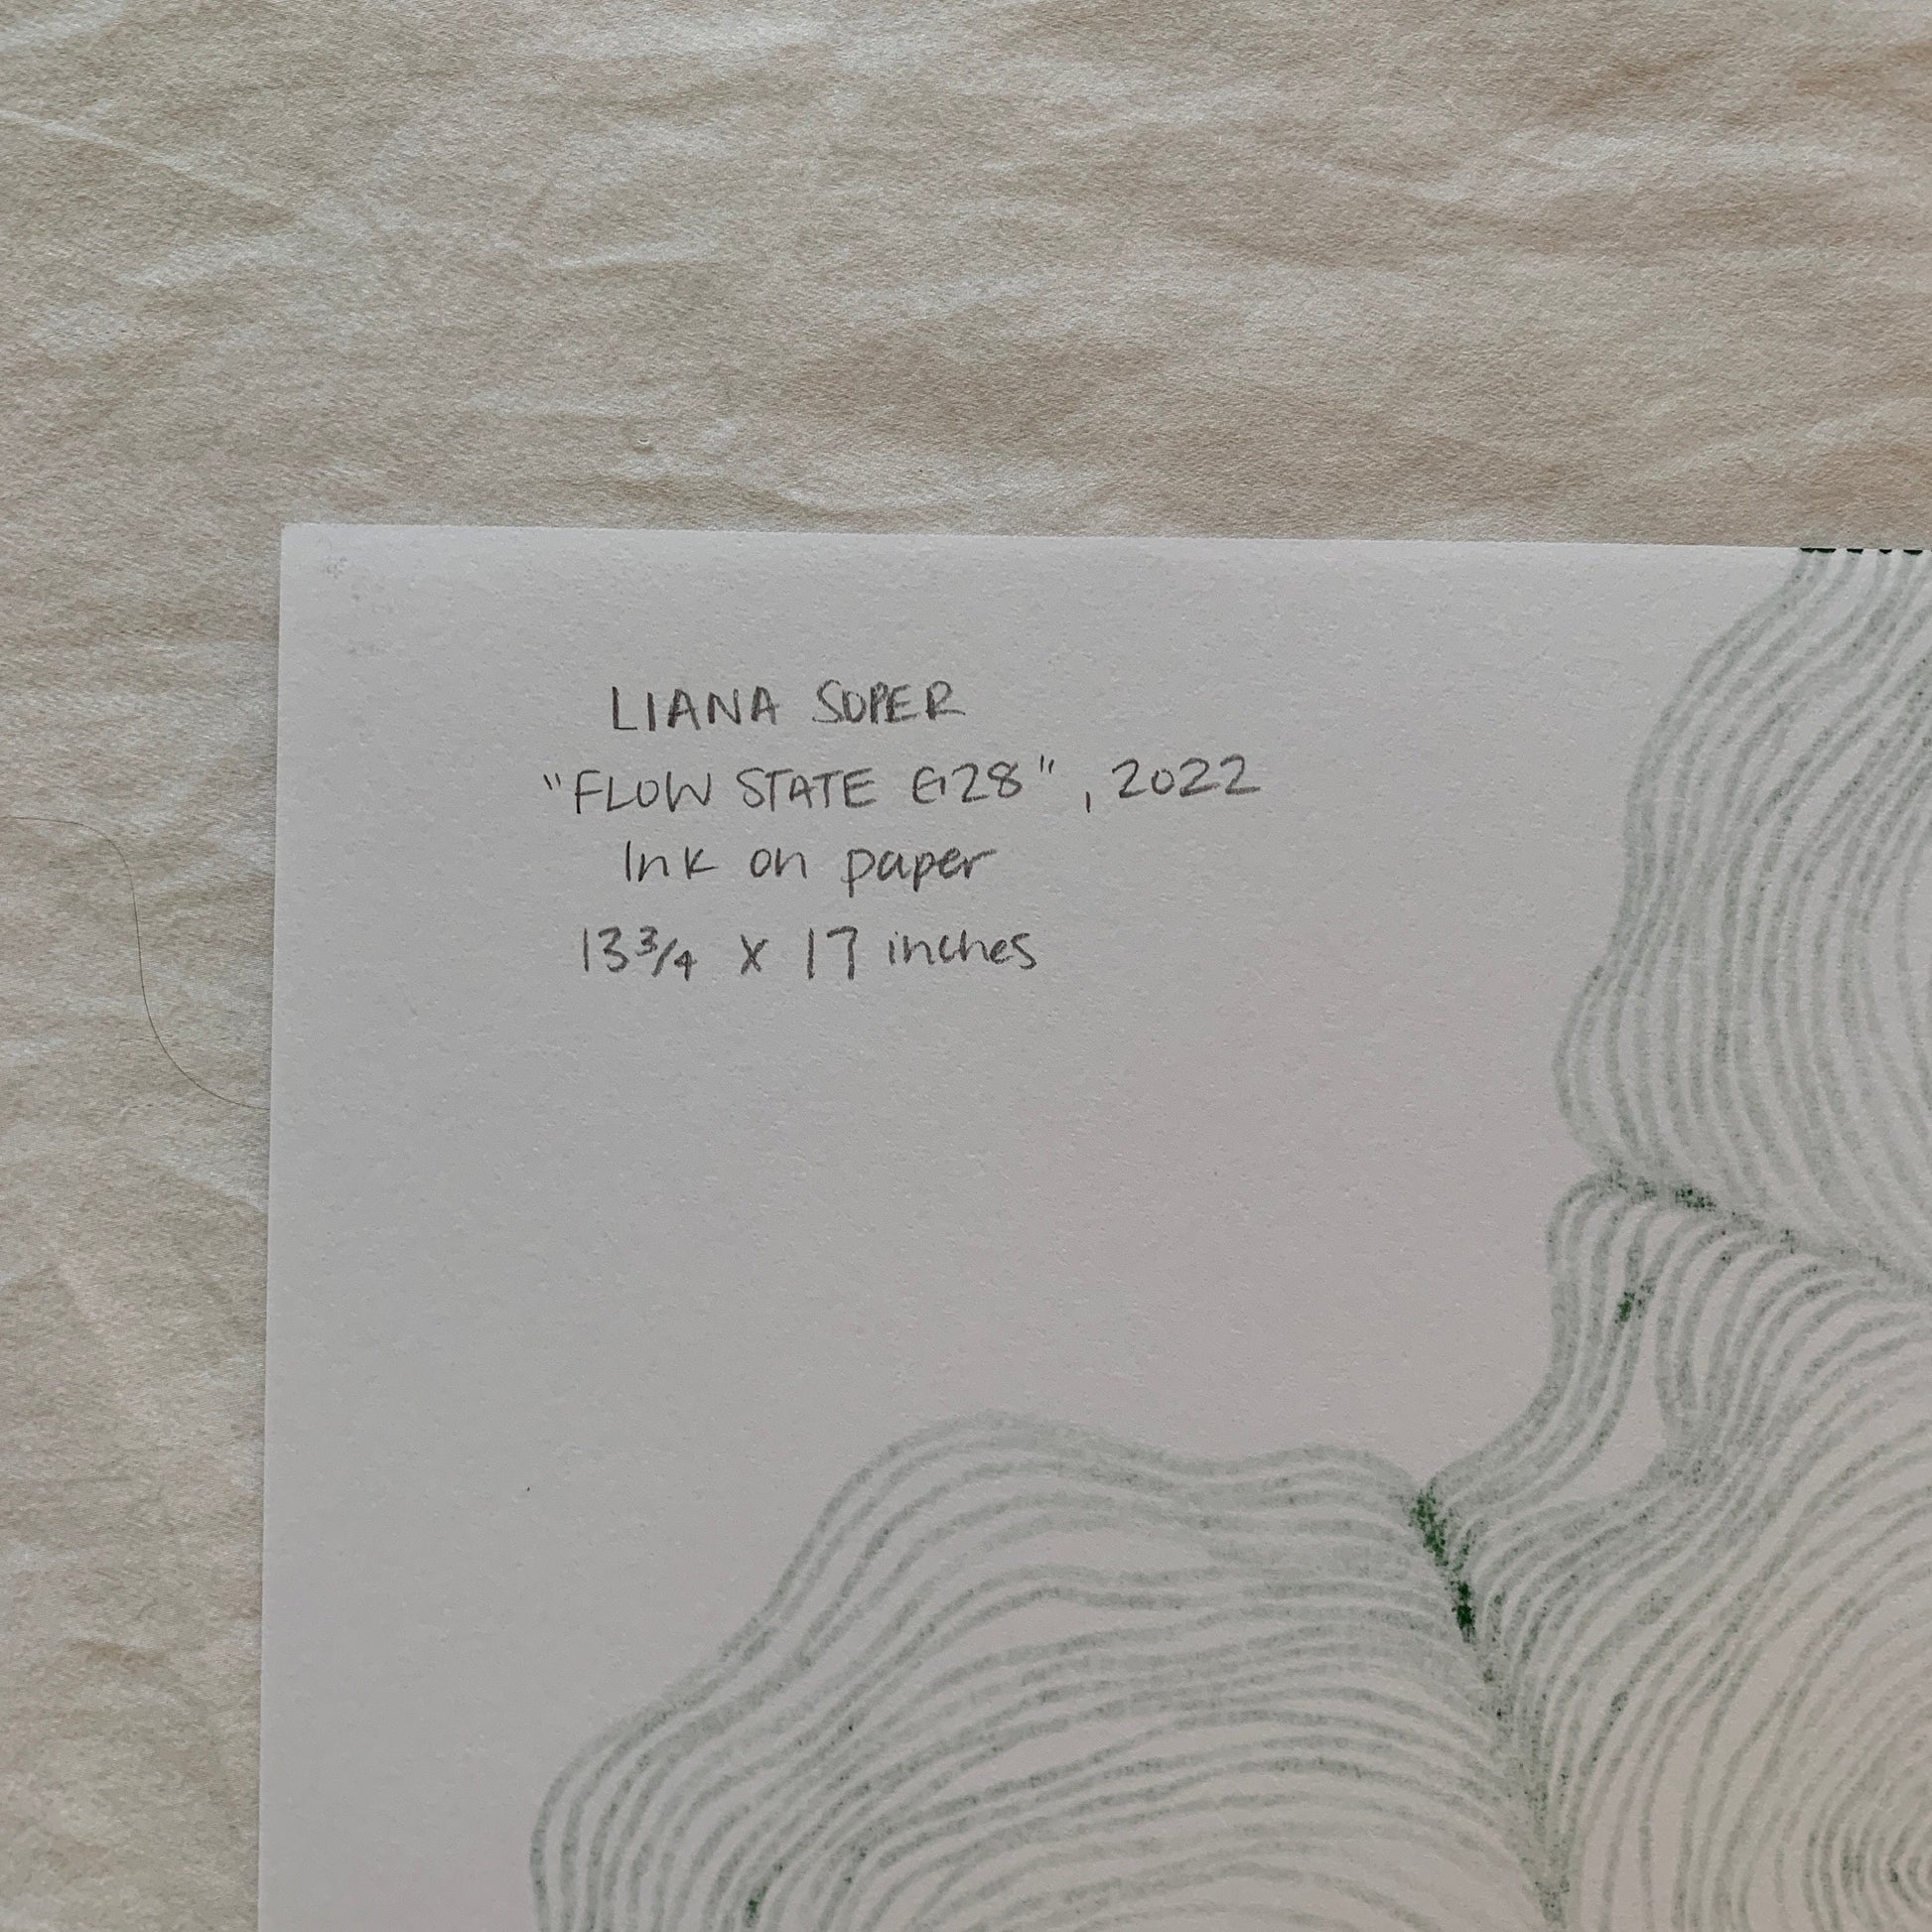 LIANA SOPER
"FLOW STATE G28", 2022
Ink on paper
13 3/4 x 17 inches